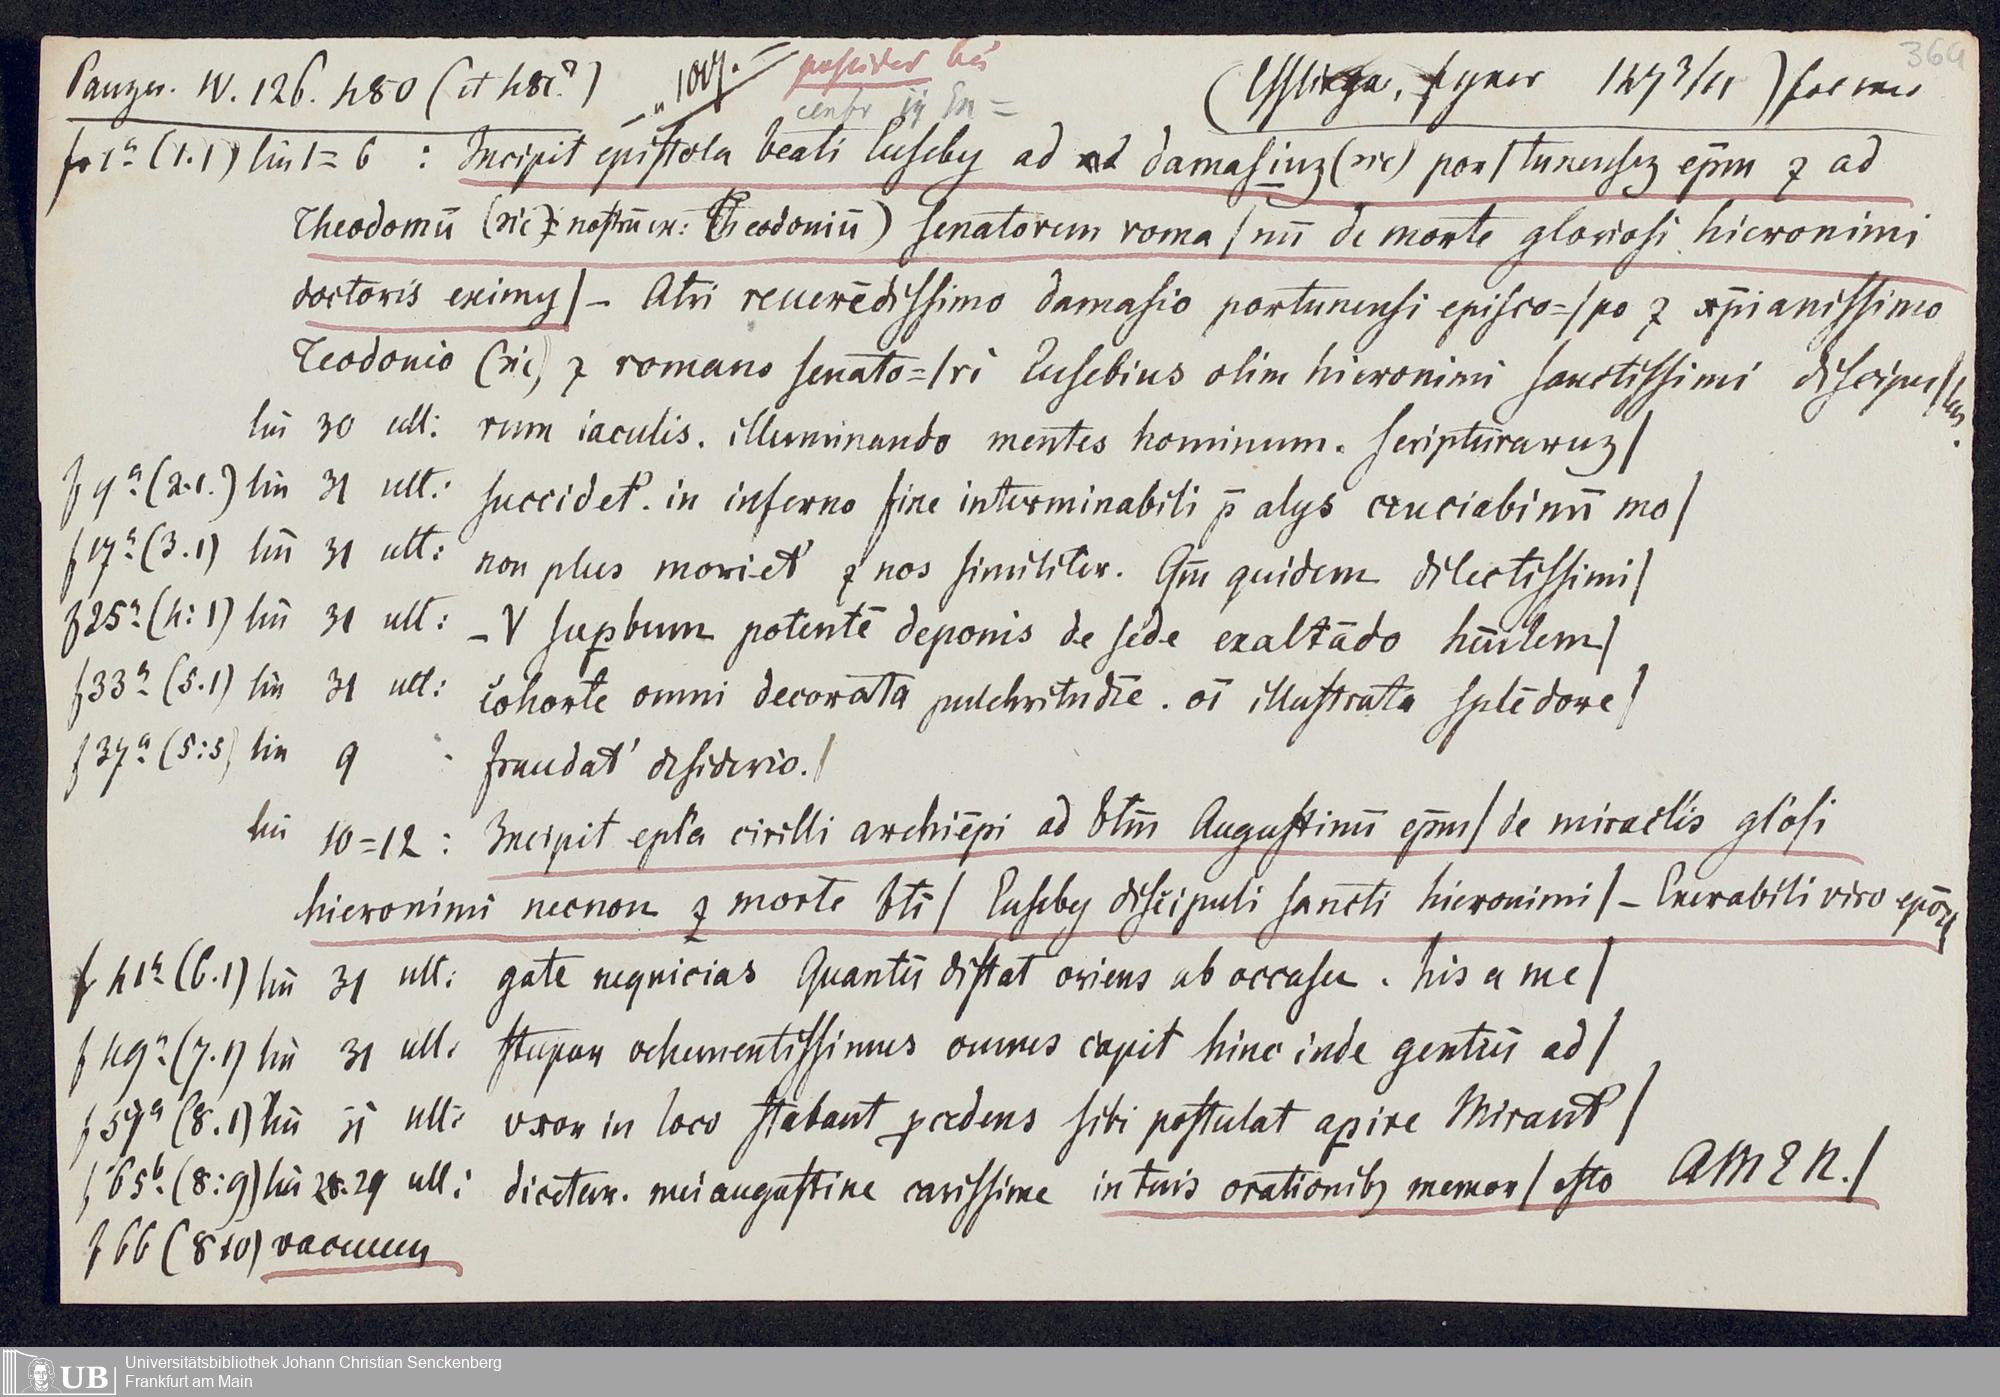 369
Panzer. IV. 126. 480 (et 481?) (Esslingae, Fyner 1473/
f 1ª (1.1) lin 1=6 : Incipit epistola beati Eusebÿ ad damasiuʒ (sic) por/tunensez ep̄m ⁊ ad
Theodomū (sic) Theodoniū) senatorem roma/nū de morte gloriosi hieronimi
doctoris eximÿ/– Atri reuerēdissimo damasio portunensi episco=/po ⁊ xp̄ianissimo
Teodonio (sic) ⁊ romano senato=/ri Eusebius olim hieronimi sanctissimi discipu/lus.
lin 30 ult: rum iaculis. illuminando mentes hominum. scripturaruʒ/
f 9ª (2.1.) lin 31 ult: succidet'. in inferno sine interminabili p̄ alÿs cruciabimū mo/
f 17ª (3.1) lin 31 ult: non plus moriet' ⁊ nos similiter. Qm̄ quidem dilectissimi/
f 25ª (4:1) lin 31 ult: –V supbum potentē deponis de sede exaltādo hūilem/
f 33ª (5.1) lin 31 ult: cohorte omni decorata pulchritudīe. oī illustrata splēdore/
f 37ª (5:5) lin 9 fraudat' desiderio./
lin 10=12 : Incipit epl'a cirilli archiēpi ad btm̄ Augustinū ep̄m/ de miracl'is gl'osi
hieronimi necnon ⁊ morte bti/ Eusebÿ discipuli sancti hieronimi/– Enerabili viro
f 41ª (6.1) lin 31 ult: gate nequicias Quantū distat oriens ab occasu. his a me/
f 49ª (7.1) lin 31 ult: stupor vehementissimus omnes capit hinc inde gentiū ad/
f 57ª (8.1) lin 31 ult: vxor in loco stabant credens sibi postulat apire Mirant'/
f 65b. (8:9) lin 28.29 ult: dicetur. mei augustine carissime in tuis orationibʒ memor/ esto AMEN./
f 66 (8.10) vacuum
Universitätsbibliothek Johann Christian Senckenberg
Frankfurt am Main
UB